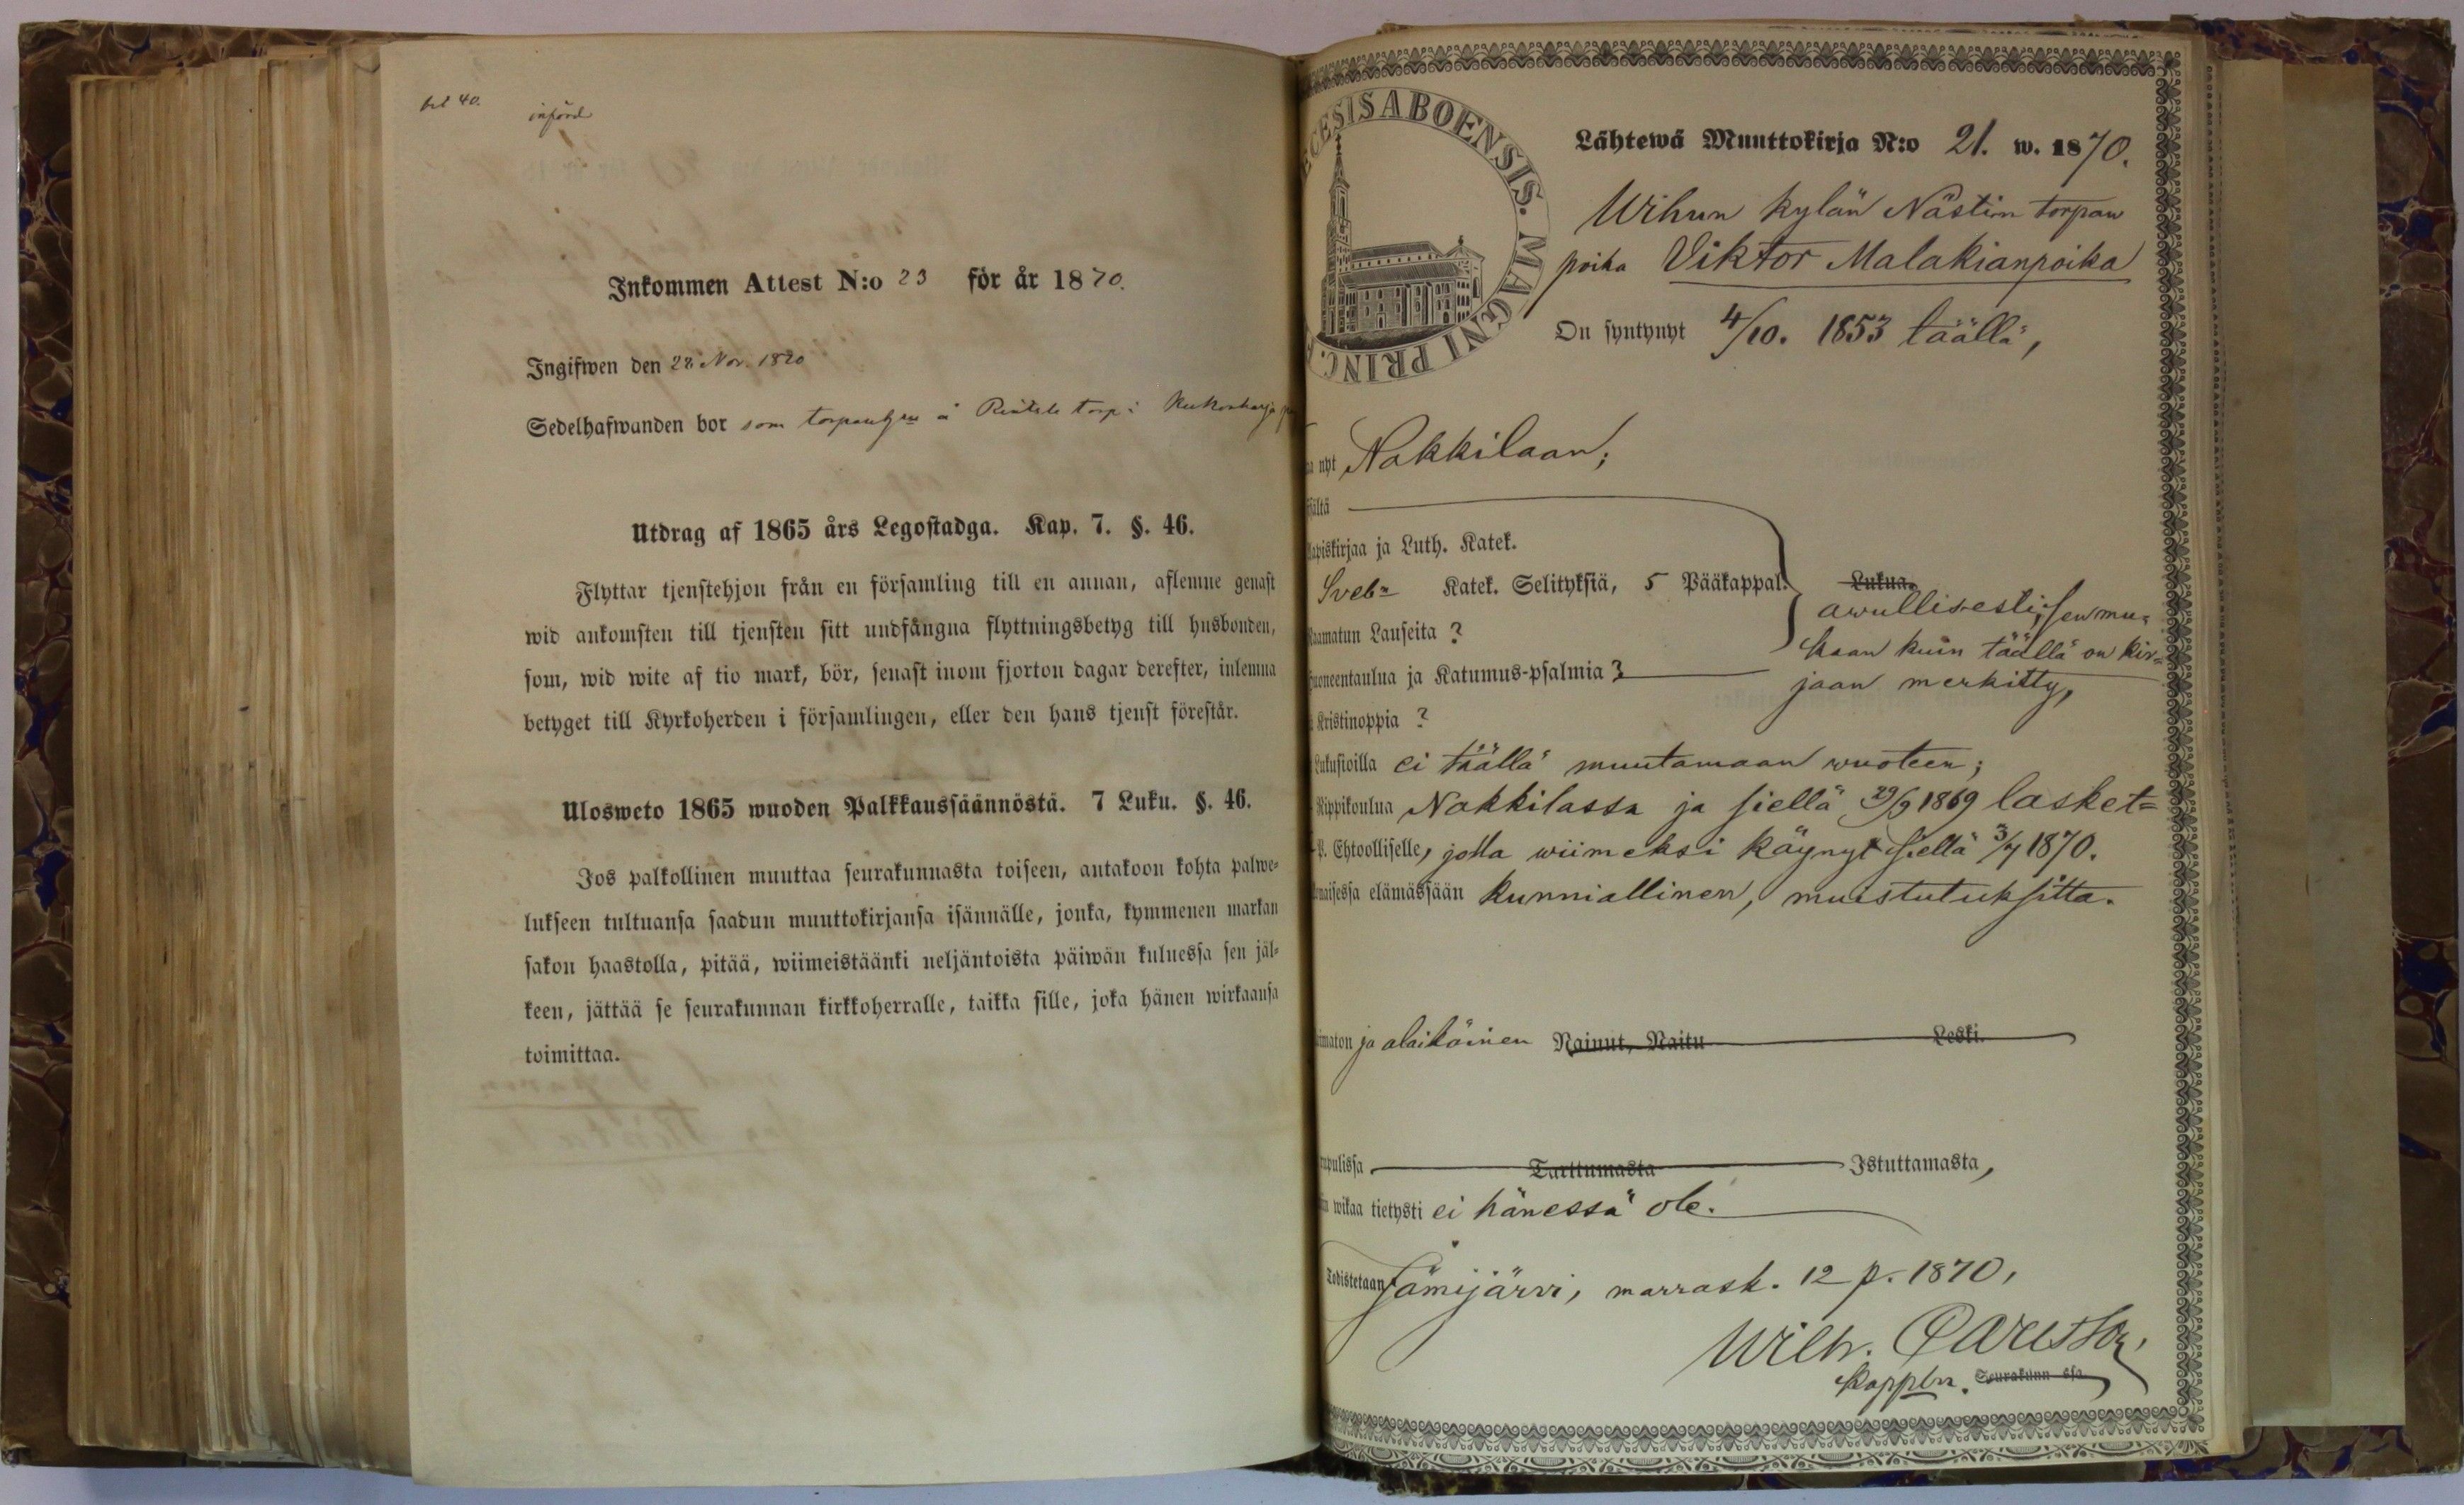 införd
Inkommen Attest N:o 23 för år 1870.
Ingifwen den 28 Nov. 1870
Sedelhafwanden bor som torp i
Utdrag af 1865 års Legostadga. Kap. 7. §. 46.
Flyttar tjenstehjon från en församling till en annan, aflemne genast
wid ankomsten till tjensten sitt undfångna flyttningsbetyg till husbonden,
som, wid wite af tio mark, bör, senast inom fjorton dagar derefter, inlemna
betyget till Kyrkoherden i församlingen, eller den hans tjenst förestår.
Ulosweto 1865 wuoden Palkkaussäännöstä. 7 Luku. §. 46.
Jos palkollinen muuttaa seurakunnasta toiseen, antakoon kohta palwe-
lukseen tultuansa saadun muuttokirjansa isännälle, jonka, kymmenen markan
sakon haastolla, pitää, wiimeistäänki neljäntoista päiwän kuluessa sen jäl-
keen, jättää se seurakunnan kirkkoherralle, taikka sille, joka hänen wirkaansa
toimittaa.
CESIS ABOENSIS. MAGNI PRINC.
Lähtewä Muuttokirja N:o 21. w. 1870.
Wihun kylän Nästin torpan
poika Viktor Malakianpoika
On syntynyt 4/10. 1853 täällä,
nyt Nakkilaan;
ältä
apiskirjaa ja Luth. Katek.
Sveb:n Katek. Selityksiä, 5 Pääkappal. Lukua.
awullisesti, sen mu-
aamatun Lauseita ?
kaan kuin täällä on kir-
uoneentaulua ja Katumus-psalmia ?
jaan merkitty,
Kristinoppia ?
Lukusioilla ei täällä muutamaan wuoteen;
Rippikoulua Nakkilassa ja siellä 29/9 1869 lasket-
P. Ehtoolliselle, jolla wiimeksi käynyt siellä 3/7 1870.
maisessa elämässään kunniallinen, muistutuksitta.
imaton ja alaikäinen Nainut, Naitu Leski.
upulissa Tarttumasta Istuttamasta,
wikaa tietysti ei hänessä ole.
Todistetaan Jämijärvi, marrask. 12 p. 1870,
Wilh. Carlsson,
Kappl:n. Seurakunn ssa.